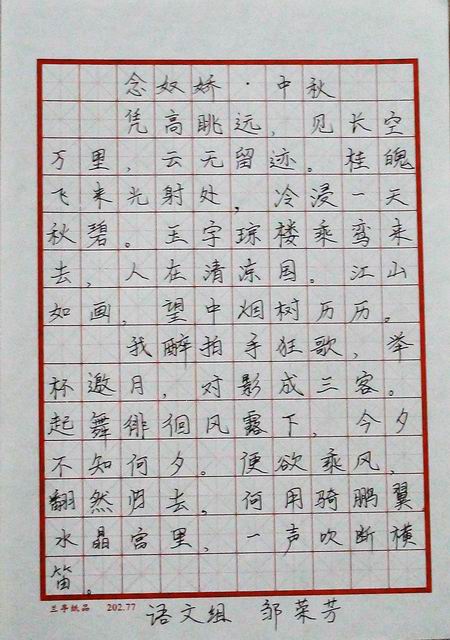 念奴娇·中秋
凭高眺远，见长空
万里，云无留迹。桂魄
飞来光射处，冷浸一天
秋碧。玉宇琼楼乘鸾来
去，人在清凉国。江山
如画，望中烟树历历。
我醉拍手狂歌，举
杯邀月，对影成三客。
起舞徘徊风露下，今夕
不知何夕。便欲乘风，
翻然归去，何用骑鹏翼
水晶宫里，一声吹断横
笛。
兰亭纸品 202.77
语文组 邹荣芳